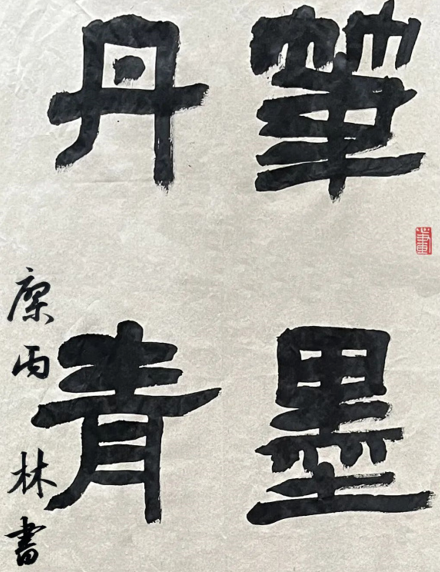 筆墨
丹青
丙林書